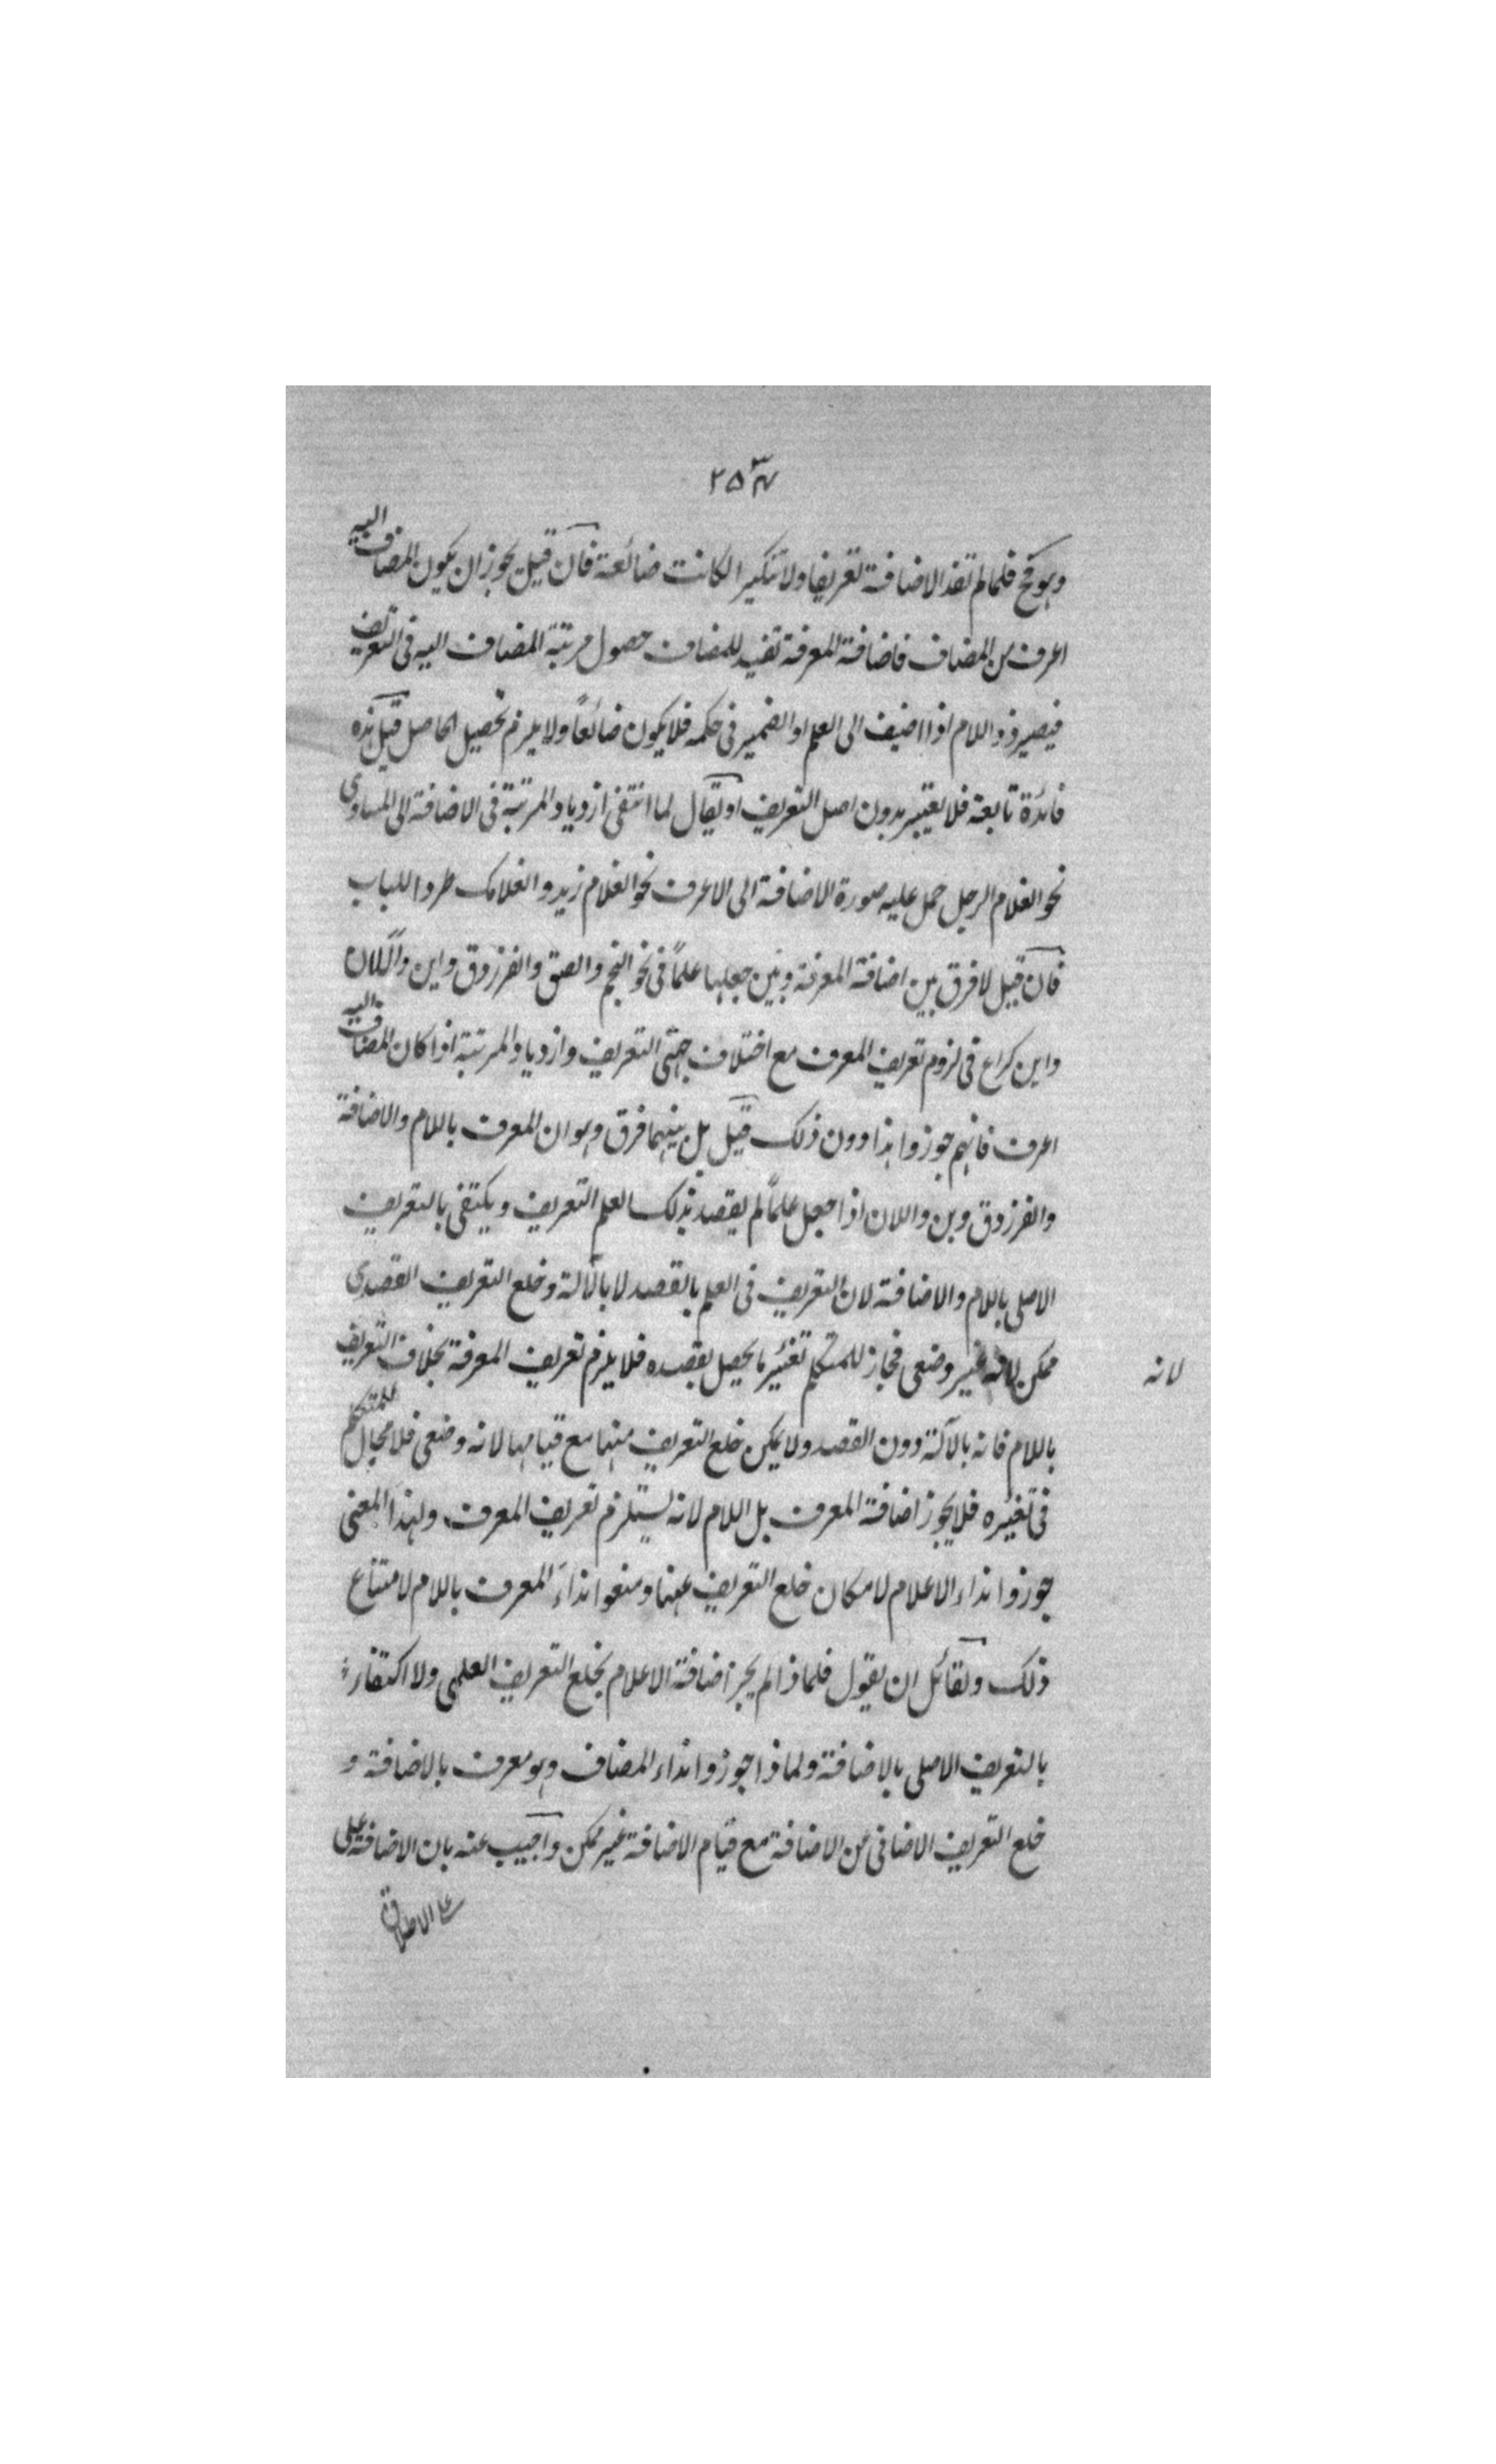 ٢٥٣
وهو قبح فلما لم تفد الاضافة تعريفا ولا تنكيرا لكانت ضائعة فان قيل يجوز ان يكون المضاف اليه
اعرف من المضاف فاضافة المعرفة تفيد للمضاف حصول مرتبة المضاف اليه فى التعريف
فيصير ذو اللام اذا اضيف الى العلم او الضمير فى حكمه فلا يكون ضائعاً ولا يلزم تحصيل الحاصل قيل هذه
فائدة تابعة فلا يعتبر بدون اصل التعريف او يقال لما انتفى ازدياد المرتبة فى الاضافة الى المساوى
نحو الغلام الرجل حمل عليه صورة الاضافة الى الاعرف نحو الغلام زيد والغلامك طردا للباب
فان قيل لا فرق بين اضافة المعرفة وبين جعلها علماً فى نحو النجم والصعق والفرزدق وابن والان
وابن كراع فى لزوم تعريف المعرف مع اختلاف جهتى التعريف وازدياد المرتبة اذا كان المضاف اليه
اعرف فانهم جوزوا هذا دون ذلك قيل بل بينهما فرق وهو ان المعرف باللام والاضافة
والفرزدق وبن واللان اذا جعل علماً لم يقصد بذلك العلم التعريف ويكتفى بالتعريف
الاصلى باللام والاضافة لان التعريف فى العلم بالقصد لا بالآلة وخلع التعريف القصدى
ممكن لانه غير وضعى فجاز للمتكلم تغيير ما يحصل بقصده فلا يلزم تعريف المعرفة بخلاف التعريف
لانه
باللام فانه بالآلة دون القصد ولا يمكن خلع التعريف منها مع قيامها لانه وضعى فلا مجال للمتكلم
فى تغيره فلا يجوز اضافة المعرف بل اللام لانه يستلزم تعريف المعرف ولهذا المعنى
جوزوا نداء الاعلام لامكان خلع التعريف عنها ومنعوا نداء المعرف باللام لامتناع
ذلك ولقائل ان يقول فلماذا لم يجز اضافة الاعلام بخلع التعريف العلمى ولا اكتفاء
بالتعريف الاصلى بالاضافة ولماذا جوزوا نداء المضاف وهو معرف بالاضافة و
خلع التعريف الاضافى من الاضافة مع قيام الاضافة غير ممكن واجيب عنه بان الاضافة على
على الاطلاق